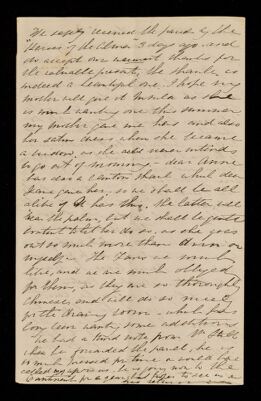 We safely received the parcel by the
"Heroes of the Alma" 3 days ago and
do accept our warmest thanks for
the valuable presents, the shawl is
indeed a beautiful one. I hope my
mother will give it as she
is now wanting one this summer
my mother gave me hers and also
her satin dress when she became
a widow, as she never intends
to go out of mourning — dear Annie
has also a Canton shawl which dear
Jane gave her, so we shall be all
alike if has this, the latter will
bear the palm, but we shall be quite
content to let her do so, as she goes
out so much more than or
myself. The Fans we much
like, and we are much obliged
for them, as they are so thoroughly
Chinese, and will do so nicely
for the Drawing room — which has
long been wanting some additions
he had a kind note from Mr
when he forwarded the parcel, he is
so much pressed for time or would have
called my spouse, he is going now to the
Continent for a year, but hopes to see us